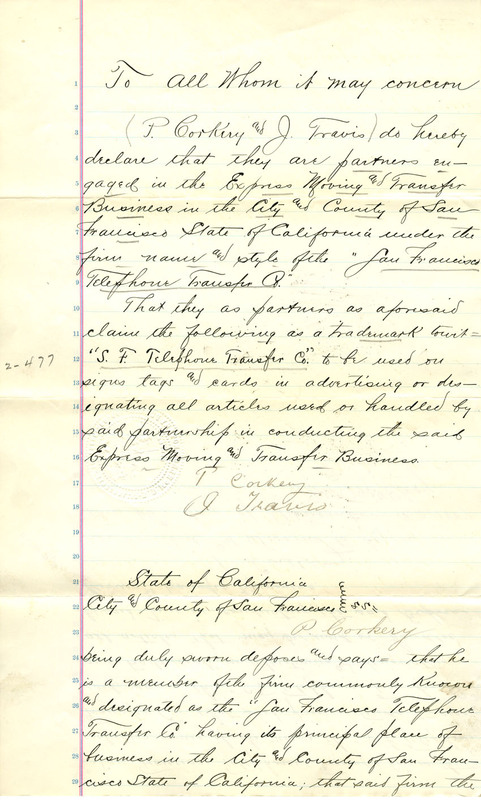 1 To All Whom it may concern
2
3 (P. Corkery and J. Travis) do hereby
4 declare that they are partners en-
5 gaged in the Express Moving and Transfer
6 Business in the City and County of San
7 Francisco State of California under the
8 firm name and style of the "San Francisco
9 Telephone Transfer Co."
10 That they as partners as aforesaid
11 claim the following as a trademark towit=
2-477
12 "S. F. Telephone Transfer Co." to be used on
13 signs tags and cards in advertising or des-
14 ignating all articles used or handled by
15 said partnership in conducting the said
16 Express Moving and Transfer Business.
17 P Corkery
18 J Travis
19
20
21 State of California
22 City and County of San Francisco } SS"
23 P. Corkery
24 being duly sworn deposes and says= that he
25 is a member of the firm commonly Known
26 and designated as the "San Francisco Telephone
27 Transfer Co" having its principal place of
28 business in the City and County of San Fran-
29 cisco State of California; that said firm the